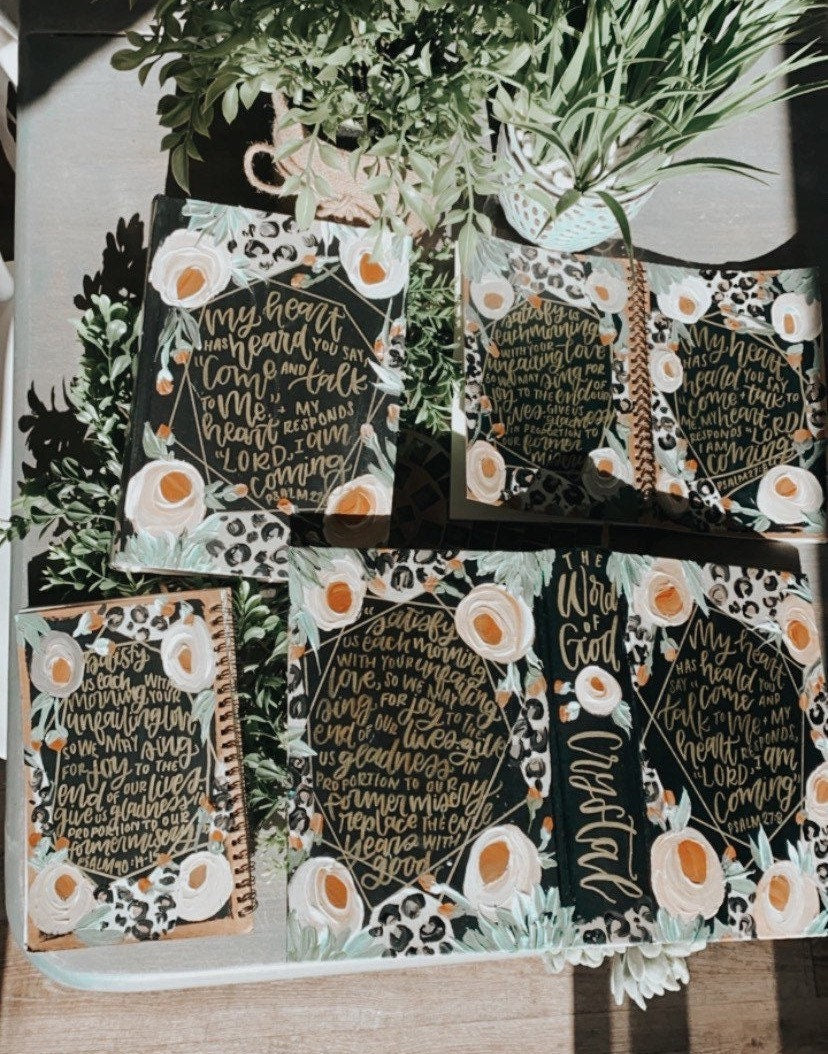 My heart
HAS heard YOU SAY,
"Come AND talk
TO Me." + MY
heart RESPONDS
"LORD, I AM
Coming
PSALM 27:8
Satisfy us
each morning
WITH YOUR
unfailing love
SO WE MAY Sing FOR
JOY TO THE END OF
OUR lives. GIVE US
gladness IN
PROPORTION TO
OUR former
misery
My heart
HAS
heard YOU SAY
"Come + talk TO
Me" MY heart
RESPONDS "LORD,
I AM
Coming"
PSALM 27:8
Satisfy
US each WITH
morning YOUR
unfailing love
SO WE MAY Sing
FOR JOY TO THE
END OF OUR lives
give us gladness IN
PROPORTION TO OUR
former misery
PSALM 90:14-15
"Satisfy
US each morning
WITH YOUR unfailing
love, SO WE MAY
Sing FOR JOY TO THE
END OF OUR lives. give
US gladness IN
PROPORTION TO OUR
former misery
replace THE evil
years WITH
good
THE
Word
OF
God
Crystal
My heart
HAS heard YOU
SAY "Come AND
talk TO Me + MY
heart RESPONDS,
"LORD, I AM
Coming"
PSALM 27:8